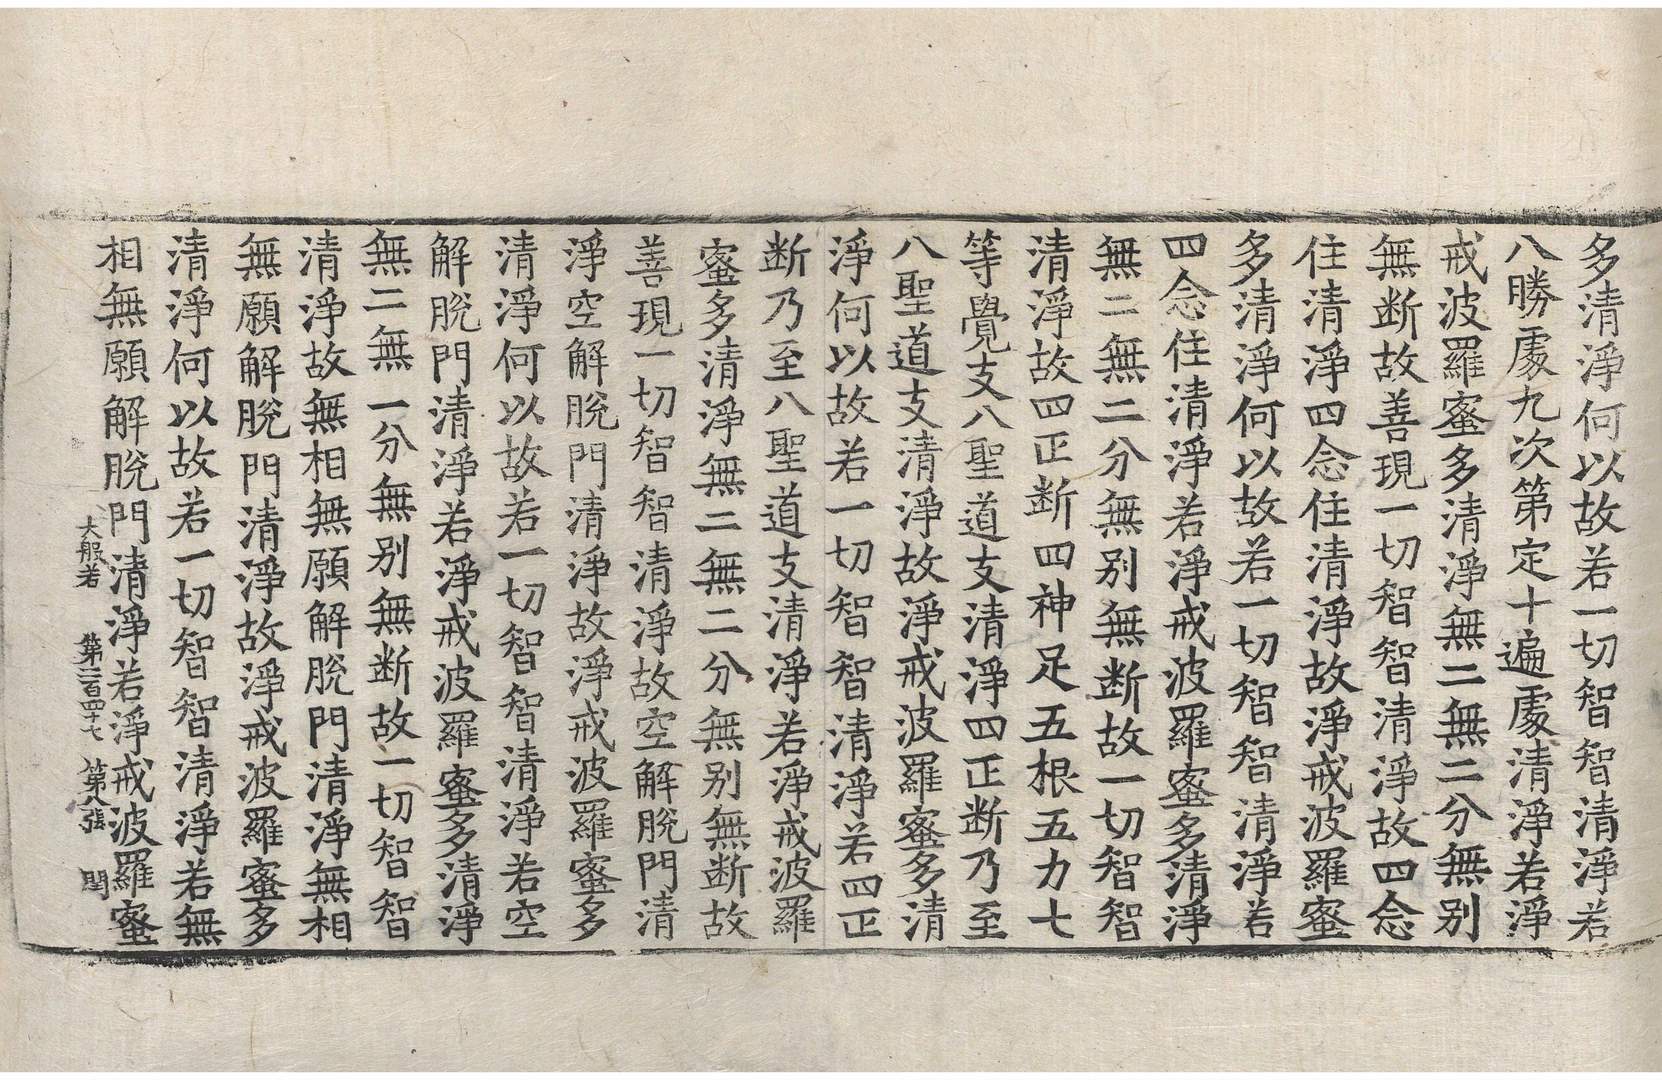 多清淨何以故若一切智智清淨若
八勝處九次第定十遍處清淨若淨
戒波羅蜜多清淨無二無二分無别
無断故善現一切智智清淨故四念
住清淨四念住清淨故淨戒波羅蜜
多清淨何以故若一切智智清淨若
四念住清淨若淨戒波羅蜜多清淨
無二無二分無别無断故一切智智
清淨故四正断四神足五根五力七
等覺支八聖道支清淨四正断乃至
八聖道支清淨故淨戒波羅蜜多清
淨何以故若一切智智清淨若四正
断乃至八聖道支清淨若淨戒波羅
蜜多清淨無二無二分無别無断故
善現一切智智清淨故空解脫門清
淨空解脫門清淨故淨戒波羅蜜多
清淨何以故若一切智智清淨若空
解脫門清淨若淨戒波羅蜜多清淨
無二無一分無别無断故一切智智
清淨故無相無願解脫門清淨無相
無願解脫門清淨故淨戒波羅蜜多
清淨何以故若一切智智清淨若無
相無願解脫門清淨若淨戒波羅蜜
大般若 第二百四十七 第八張 閏